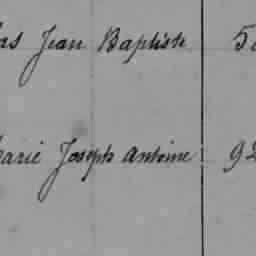 as Jean Baptiste 5
arie Joseph Antoine 92